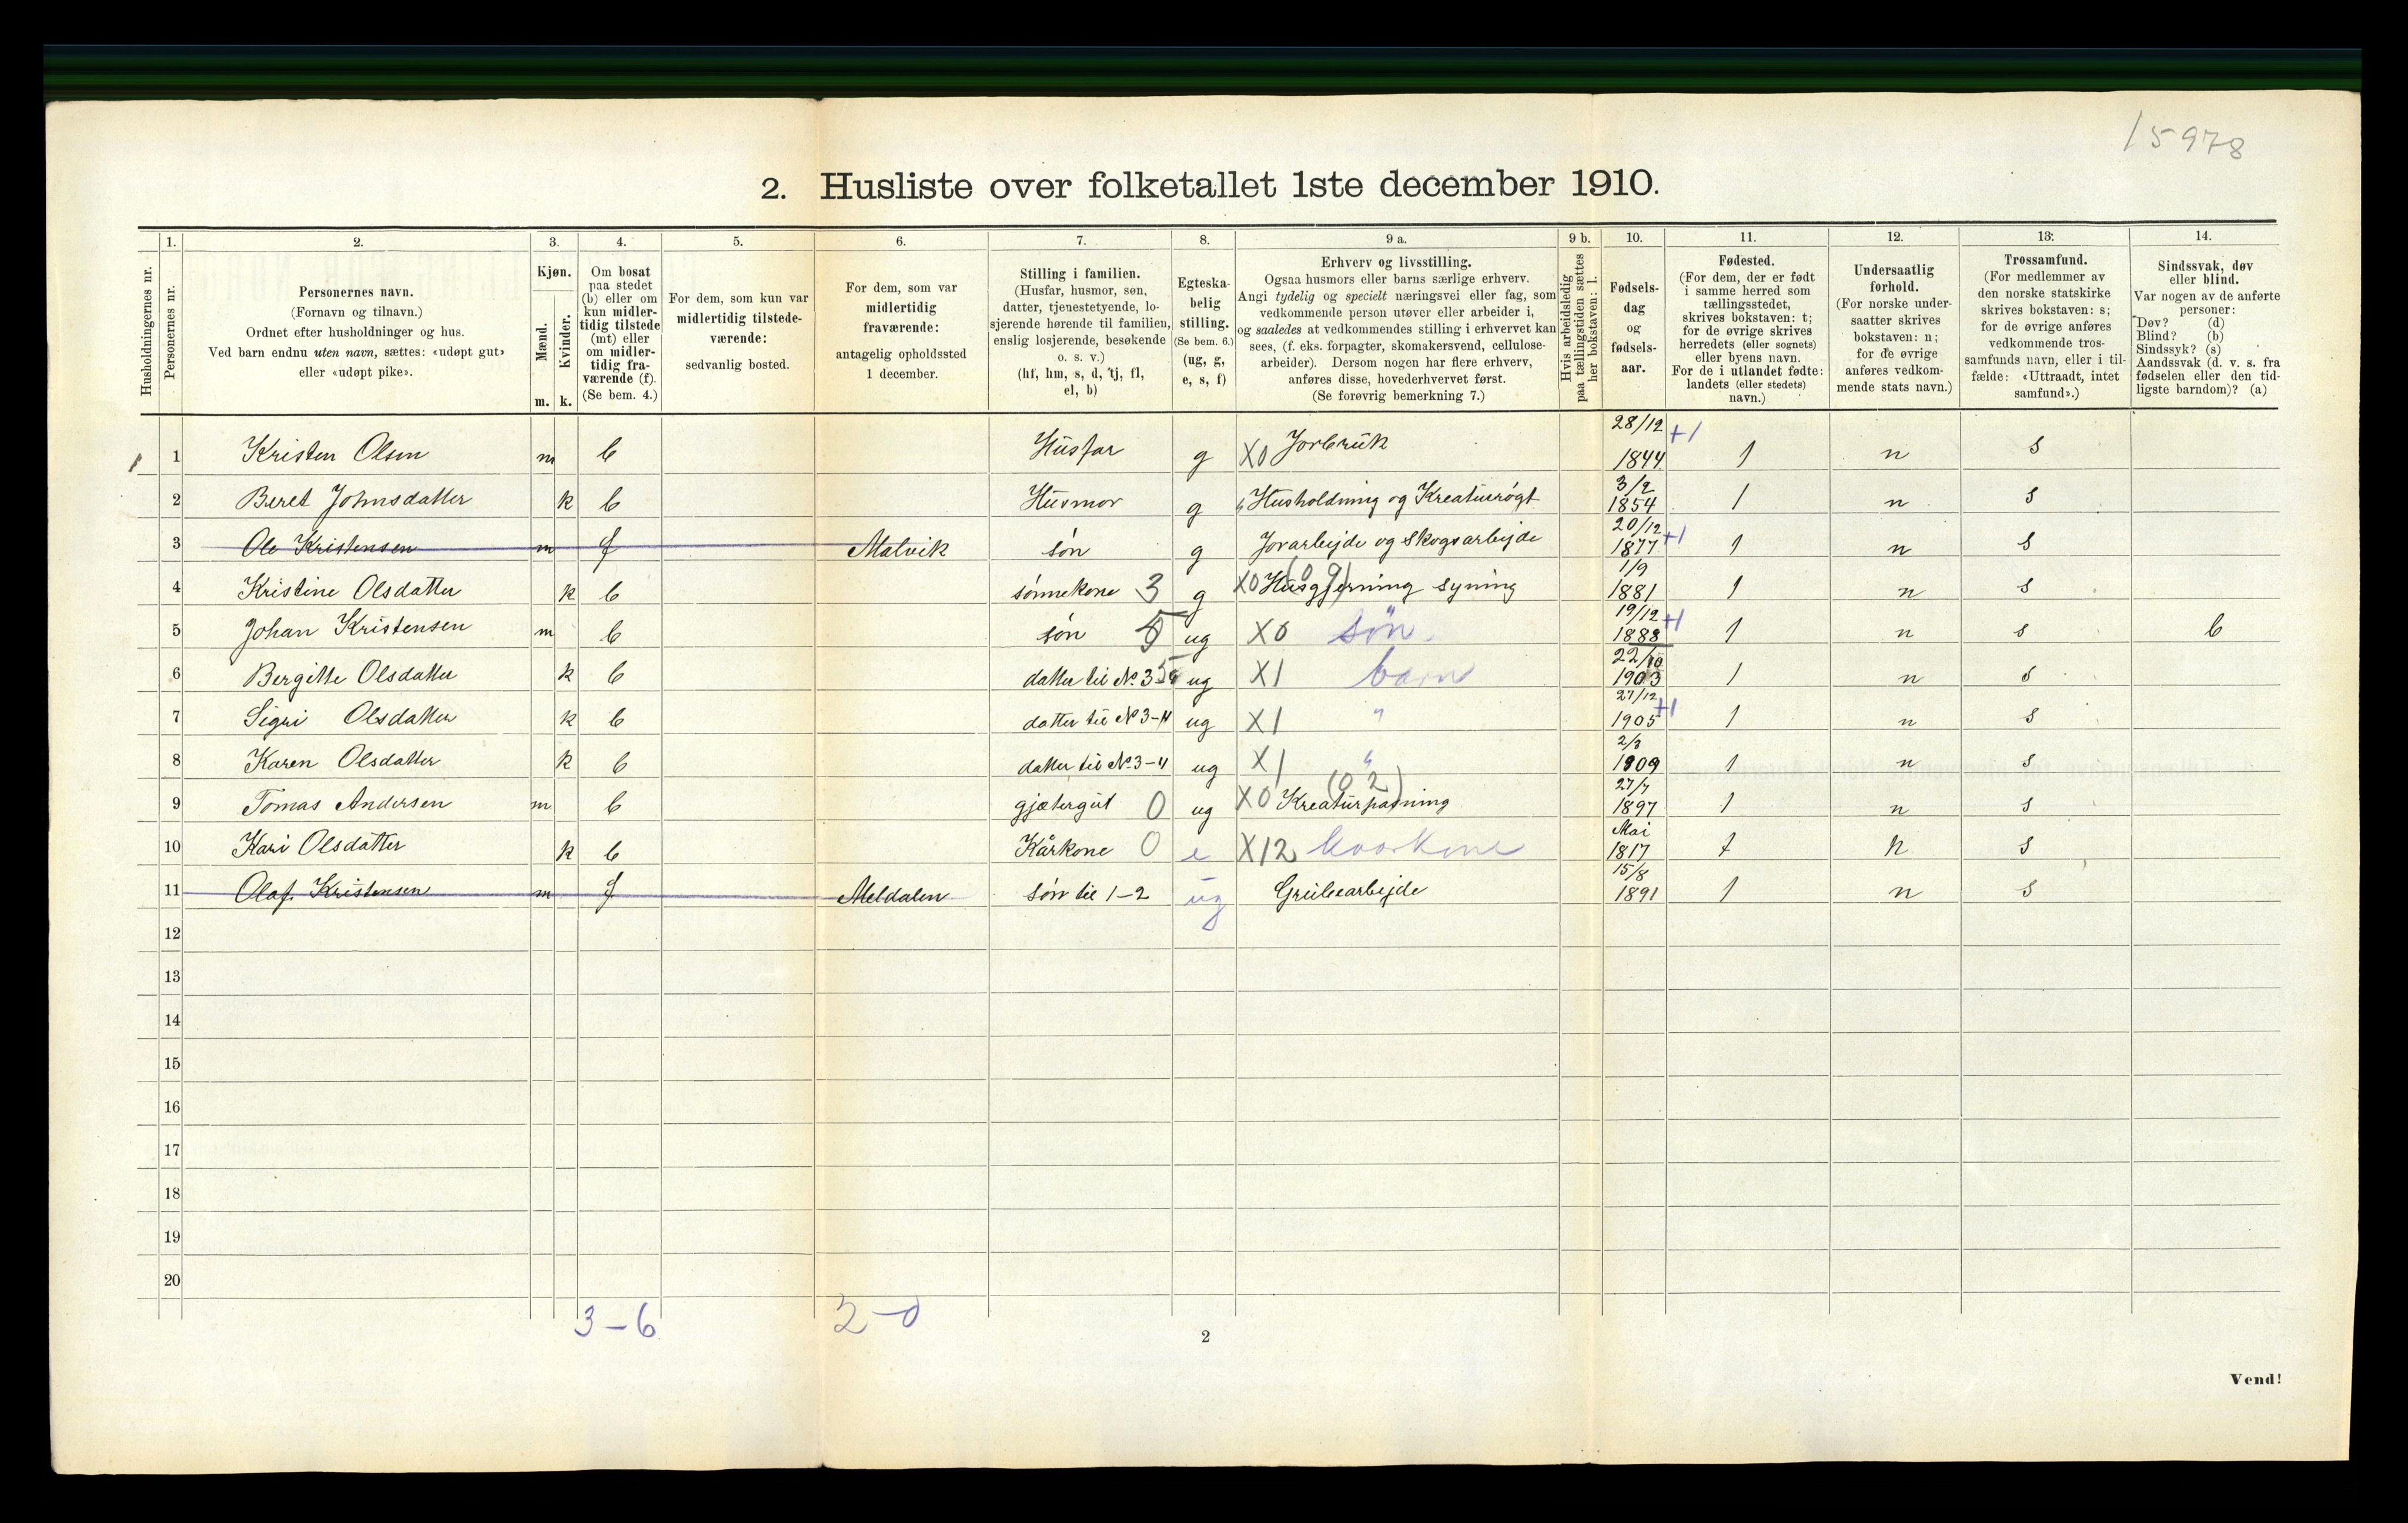 15978
2. Husliste over folketallet 1ste december 1910.
1. 2. 3. 4. 5. 6. 7. 8. 9 a. 9 b. 10. 11. 12. 13. 14.
Husholdningernes nr.
Personernes nr.
Personernes navn.
(Fornavn og tilnavn.)
Ordnet efter husholdninger og hus.
Ved barn endnu uten navn, sættes: «udøpt gut»
eller «udøpt pike».
Kjøn.
Mænd.
Kvinder.
m. k.
Om bosat
paa stedet
(b) eller om
kun midler-
tidig tilstede
(mt) eller
om midler-
tidig fra-
værende (f).
(Se bem. 4.)
For dem, som kun var
midlertidig tilstede-
værende:
sedvanlig bosted.
For dem, som var
midlertidig
fraværende:
antagelig opholdssted
1 december.
Stilling i familien.
(Husfar, husmor, søn,
datter, tjenestetyende, lo-
sjerende hørende til familien,
enslig losjerende, besøkende
o. s. v.)
(hf, hm, s, d, tj, fl,
el, b)
Egteska-
belig
stilling.
(Se bem. 6.)
(ug, g,
e, s, f)
Erhverv og livsstilling.
Ogsaa husmors eller barns særlige erhverv.
Angi tydelig og specielt næringsvei eller fag, som
vedkommende person utøver eller arbeider i,
og saaledes at vedkommendes stilling i erhvervet kan
sees, (f. eks. forpagter, skomakersvend, cellulose-
arbeider). Dersom nogen har flere erhverv,
anføres disse, hovederhvervet først.
(Se forøvrig bemerkning 7.)
Hvis arbeidsledig
paa tællingstiden sættes
her bokstaven: l.
Fødsels-
dag
og
fødsels-
aar.
Fødested.
(For dem, der er født
i samme herred som
tællingsstedet,
skrives bokstaven: t;
for de øvrige skrives
herredets (eller sognets)
eller byens navn.
For de i utlandet fødte:
landets (eller stedets)
navn.)
Undersaatlig
forhold.
(For norske under-
saatter skrives
bokstaven: n;
for de øvrige
anføres vedkom-
mende stats navn.)
Trossamfund.
(For medlemmer av
den norske statskirke
skrives bokstaven: s;
for de øvrige anføres
vedkommende tros-
samfunds navn, eller i til-
fælde: «Uttraadt, intet
samfund».)
Sindssvak, døv
eller blind.
Var nogen av de anførte
personer:
Døv? (d)
Blind? (b)
Sindssyk? (s)
Aandssvak (d. v. s. fra
fødselen eller den tid-
ligste barndom)? (a)
1 1 Kristen Olsen m b Husfar g X0 Jorbruk 28/12 1844 +1 t n s
2 Beret Johnsdatter k b Husmor g Husholdning og Kreaturrøgt 3/2 1854 t n s
3 Ole Kristensen m f Malvik søn g Jorarbejde og skogsarbejde 20/12 1877 +1 t n s
4 Kristine Olsdatter k b sønnekone 3 g X0 Husgjerning syning (0 9) 1/9 1881 t n s
5 Johan Kristensen m b søn ug X0 søn 19/12 1888 +1 t n s b
6 Bergitte Olsdatter k b datter til No 3 ug X1 barn 22/10 1903 t n s
7 Sigri Olsdatter k b datter til No 3-4 ug X1 " 27/12 1905 +1 t n s
8 Karen Olsdatter k b datter til No 3-4 ug X1 " 2/3 1909 t n s
9 Tomas Andersen m b gjætergut 0 ug X0 Kreaturpasning (0 2) 27/7 1897 t n s
10 Kari Olsdatter k b Kårkone 0 e X12 kaarkone Mai 1817 t n s
11 Olaf Kristensen m f Meldalen søn til 1-2 ug Grubearbejde 15/8 1891 t n s
12
13
14
15
16
17
18
19
20
3-6 2-0
2
Vend!